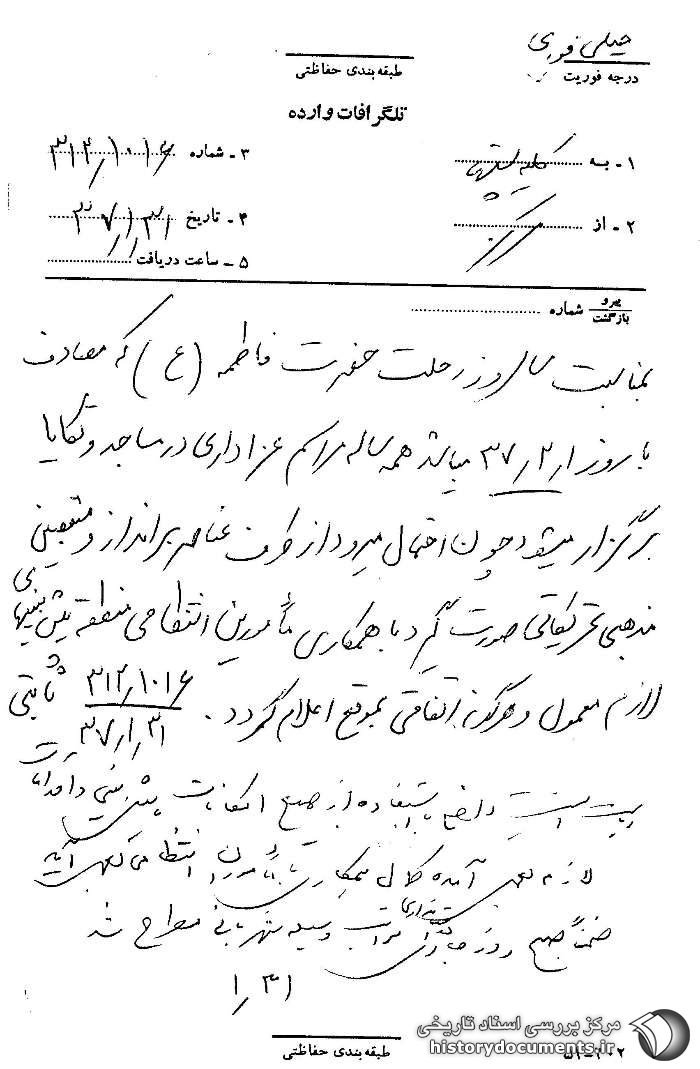 خیلی فوری
درجه فوریت
طبقه‌بندی حفاظتی
تلگرافات وارده
۱ - به کلیه
۳ - شماره ۳۱۲/۱۰۱۶
۲ - از مرکز
۴ - تاریخ ۳۷/۱/۳۱
۵ - ساعت دریافت
پیرو
بازگشت
شماره
بمناسبت سالروز رحلت حضرت فاطمه (ع) که مصادف
با روز ۳۷/۲/۲ میباشد همه ساله مراسم عزاداری در مساجد و تکایا
برگزار میشود چون احتمال میرود از طرف عناصر برانداز و متعصبینی
مذهبی تحریکاتی صورت گیرد با همکاری مأمورین انتظامی منطقه پیش بینیهای
لازم معمول و هرگونه اتفاقی بموقع اعلام گردد. ۳۱۲/۱۰۱۶ ثابتی
۳۷/۱/۳۱
با استفاده از جمیع امکانات پیش بینی و اقدامات
لازم بعمل آمده همکاری با مأمورین انتظامی بعمل آید
ضمناً صبح روز مراتب وسیله شهربانی مطرح شد
۱/۳۱
طبقه‌بندی حفاظتی
مرکز بررسی اسناد تاریخی
historydocuments.ir